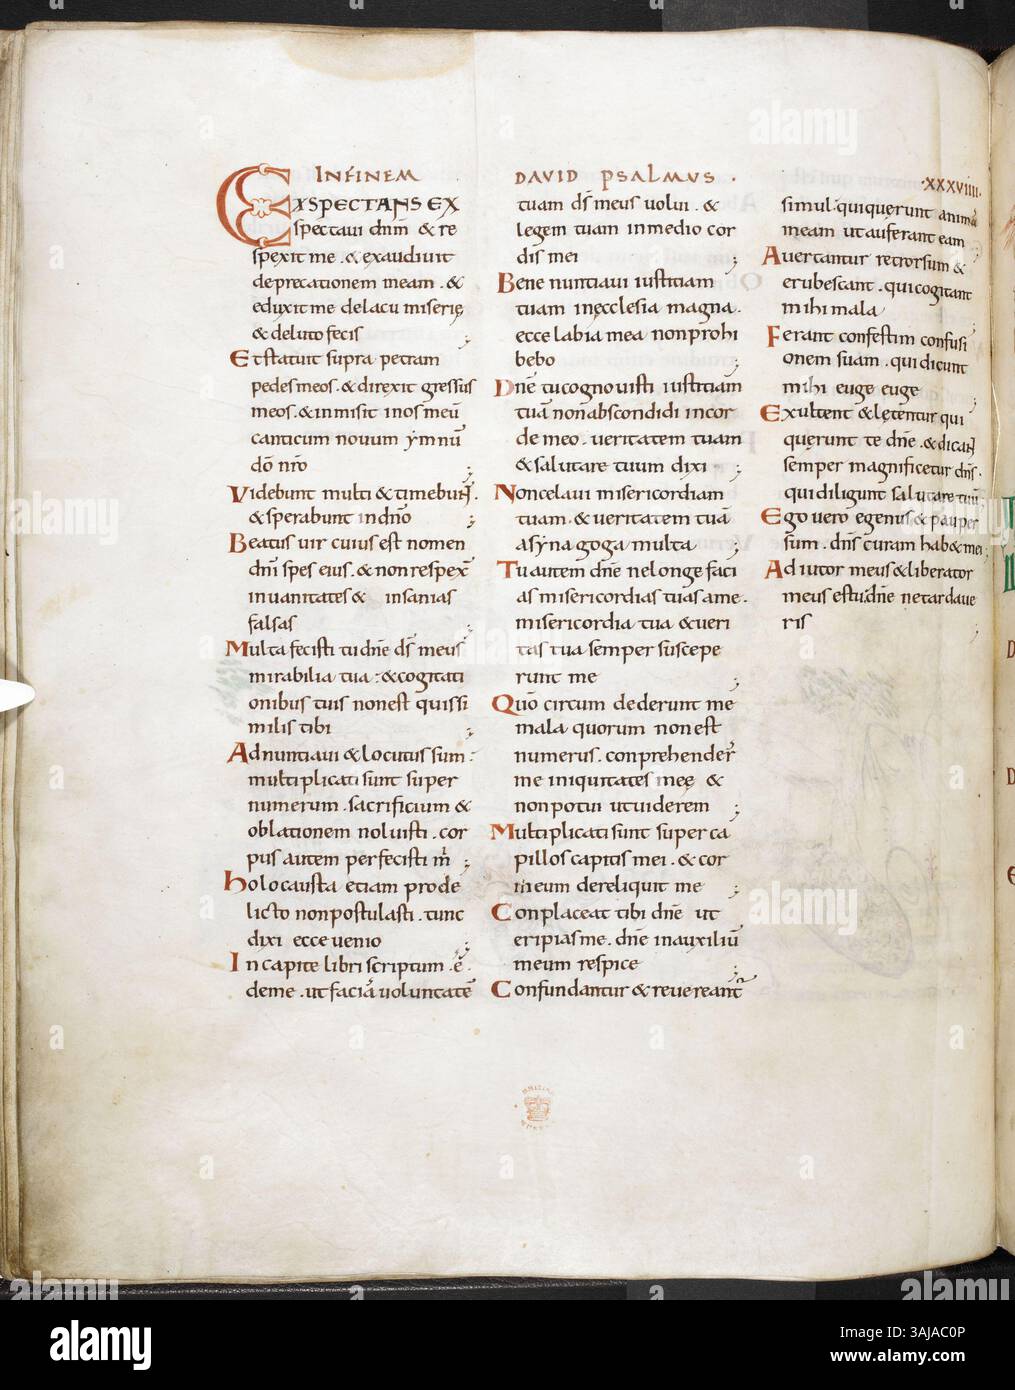 INFINEM
EXSPECTANS EX
spectaui dn̄m & re
spexit me . & exaudiuit
deprecationem meam . &
eduxit me delacu miserię
& deluto fecis
Et statuit supra petram
pedes meos . & direxit gressus
meos . & inmisit in os meū
canticum nouum ymnū
dō nr̄o ;
Videbunt multi & timebunt .
& sperabunt in dn̄o ;
Beatus uir cuius est nomen
dn̄i spes eius . & non respex̄
in uanitates & insanias
falsas ;
Multa fecisti tu dn̄e ds̄ meus
mirabilia tua : & cogitati
onibus tuis non est quissi
milis tibi ;
Adnuntiaui & locutus sum :
multiplicati sunt super
numerum . sacrificium &
oblationem noluisti . cor
pus autem perfecisti m̄ ;
holocausta etiam pro de
licto non postulasti . tunc
dixi ecce uenio ;
In capite libri scriptum . ē .
de me . ut faciā uoluntatē
DAVID PSALMUS .
tuam ds̄ meus uolui . &
legem tuam in medio cor
dis mei ;
Bene nuntiaui iustitiam
tuam in ęcclesia magna .
ecce labia mea non prohi
bebo ;
Dn̄e tu cognouisti iustitiam
tuā non abscondidi in cor
de meo . ueritatem tuam
& salutare tuum dixi ;
Non celaui misericordiam
tuam . & ueritatem tuā
a synagoga multa ;
Tu autem dn̄e ne longe faci
as misericordias tuas a me .
misericordia tua & ueri
tas tua semper suscepe
runt me ;
Quō circumdederunt me
mala quorum non est
numerus . conprehender̄
me iniquitates meę &
non potui ut uiderem ;
Multiplicati sunt super ca
pillos capitis mei . & cor
meum dereliquit me ;
Conplaceat tibi dn̄e ut
eripias me . dn̄e in auxiliū
meum respice ;
Confundantur & reuereant̄
.XXXVIIII.
simul . qui querunt animā
meam ut auferant eam
Auertantur retrorsum &
erubescant . qui cogitant
mihi mala
Ferant confestim confusi
onem suam . qui dicunt
mihi euge euge
Exultent & lętentur qui
querunt te dn̄e . & dicant
semper magnificetur dn̄s .
qui diligunt salutare tuū
Ego uero egenus & pauper
sum . dn̄s curam hab& mei ;
Adiutor meus & liberator
meus es tu . dn̄e ne tardaue
ris ;
alamy
alamy
3AJAC0P
www.alamy.com